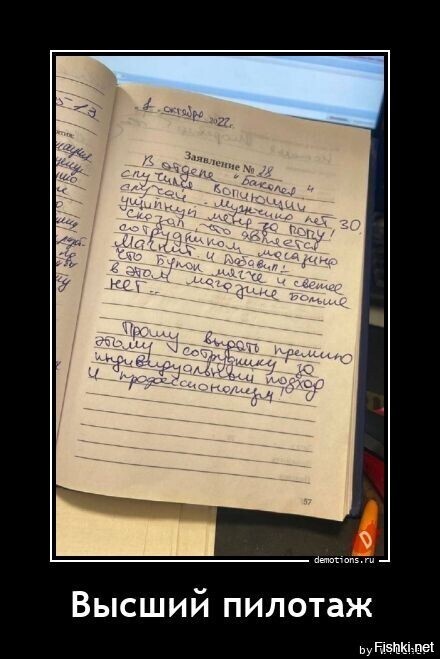 1 октября 2022г.
Заявление № 28
В отделе "Бакалея"
случился вопиющий
случай. Мужчина лет 30,
ущипнул меня за попу!
сказал что является
сотрудником магазина
Магнит и добавил:
что булок мягче и свежее
в этом магазине больше
нет...
Прошу выдать премию
этому сотруднику за
индивидуальный подход
и профессионализм!
57
demotions.ru
Высший пилотаж
by
Fishki.net